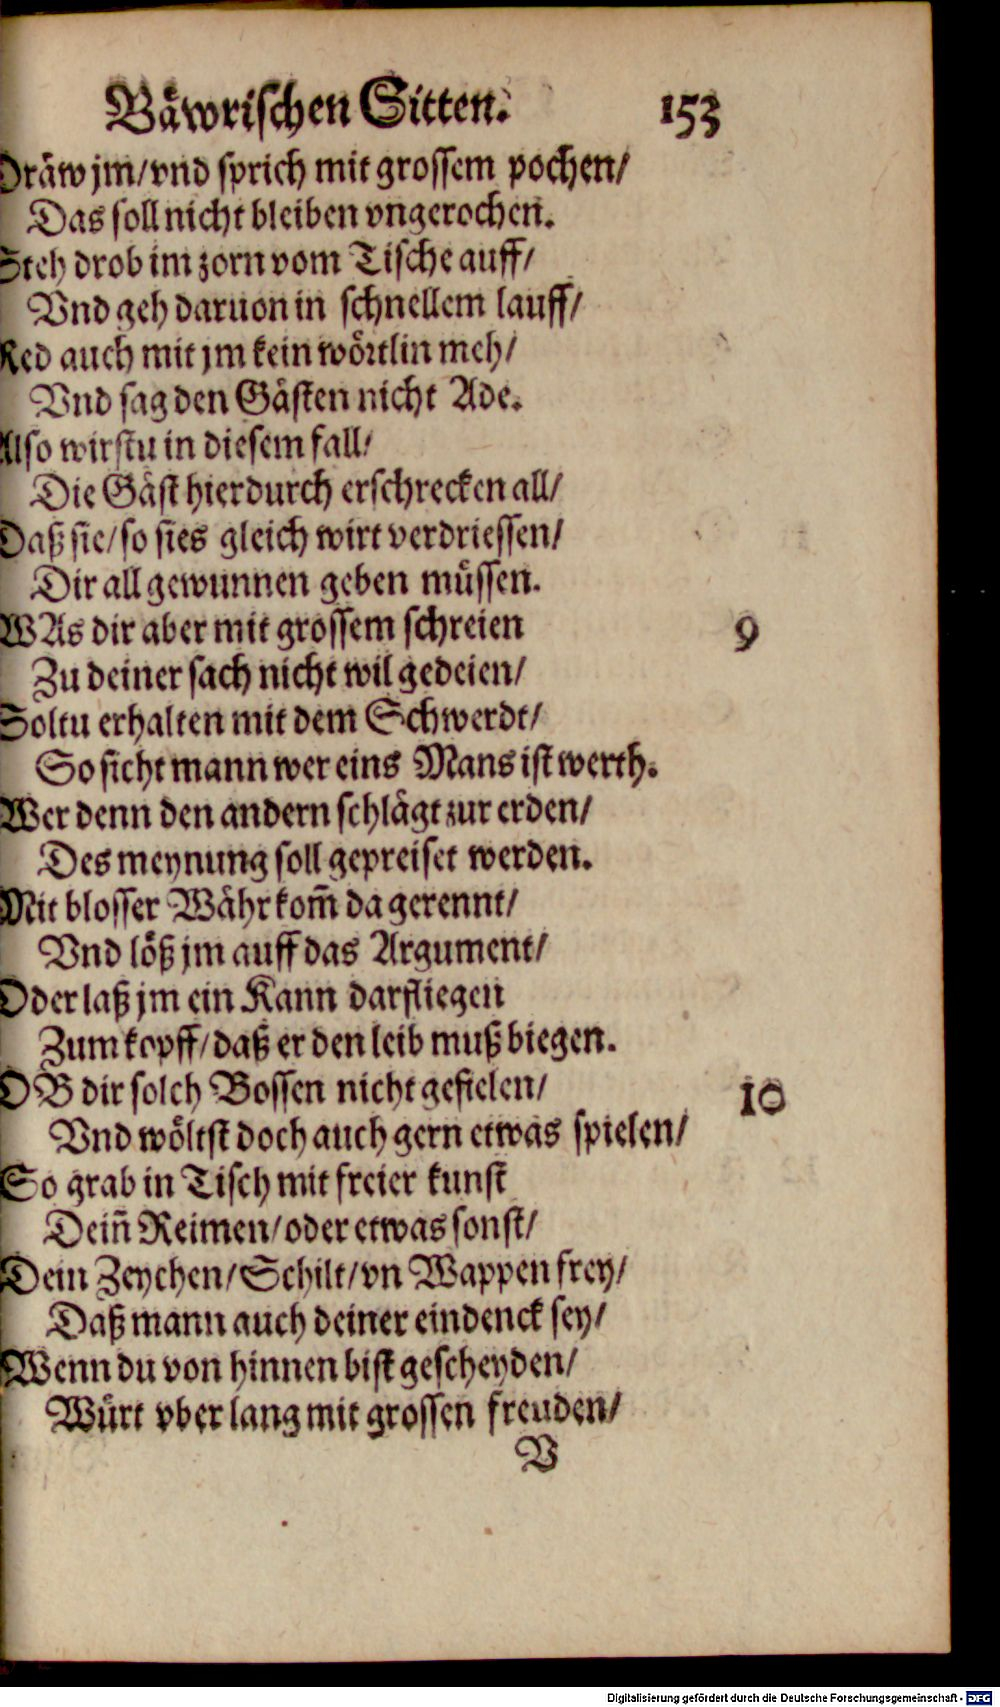 Bäwrischen Sitten. 153
Dräw jm/ vnd sprich mit grossem pochen/
Das soll nicht bleiben vngerochen.
Steh drob im zorn vom Tische auff/
Vnd geh daruon in schnellem lauff/
Red auch mit jm kein wörtlin meh/
Vnd sag den Gästen nicht Ade.
Also wirstu in diesem fall/
Die Gäst hierdurch erschrecken all/
Daß sie/ so sies gleich wirt verdriessen/
Dir all gewunnen geben müssen.
WAs dir aber mit grossem schreien 9
Zu deiner sach nicht wil gedeien/
Soltu erhalten mit dem Schwerdt/
So sicht mann wer eins Mans ist werth.
Wer denn den andern schlägt zur erden/
Des meynung soll gepreiset werden.
Mit blosser Währ kom̃ da gerennt/
Vnd löß jm auff das Argument/
Oder laß jm ein Kann darfliegen
Zum kopff/ daß er den leib muß biegen.
OB dir solch Bossen nicht gefielen/ 10
Vnd wöltst doch auch gern etwas spielen/
So grab in Tisch mit freier kunst
Dein̄ Reimen/ oder etwas sonst/
Dein Zeychen/ Schilt/ vn Wappen frey/
Daß mann auch deiner eindenck sey/
Wenn du von hinnen bist gescheyden/
Würt vber lang mit grossen freuden/
V
Digitalisierung gefördert durch die Deutsche Forschungsgemeinschaft - DFG